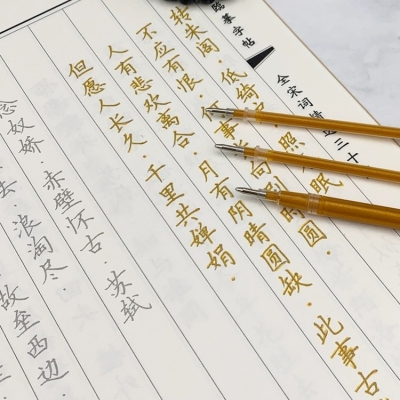 临摹字帖
全宋词精选三十
转朱阁·低绮 照 眠
不应有恨·何事 向 时圆·
人有悲欢离合·月有阴晴圆缺·此事古
但愿人长久·千里共婵娟·
念奴娇·赤壁怀古·苏轼
去·浪淘尽·
故垒西边·
三